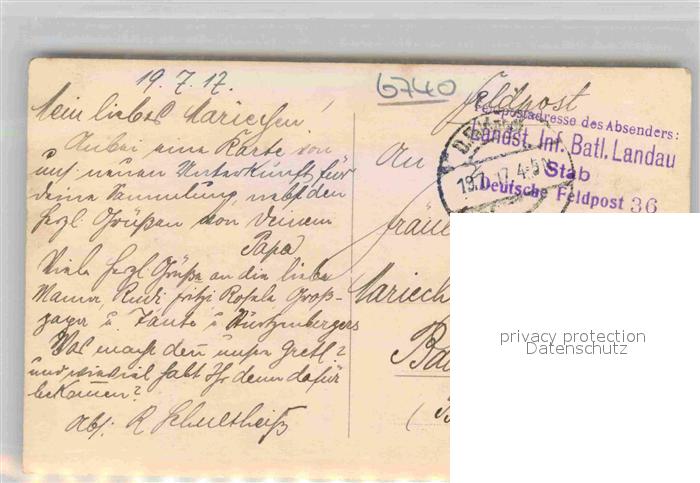 19.7.17.
6740
Feldpost
Mein liebes Mariechen!
Feldpostadresse des Absenders:
Landst. Inf. Batl. Landau
Stab
Deutsche Feldpost 36
19.7.17. 4-5
Anbei eine Karte von
uns. neuen Unterkunft für
deine Sammlung nebst den
herzl Grüßen von Deinem
Papa
Viele herzl Grüße an die liebe
Mama, Rudi Fritzi Rosele Groß-
papa u. Tante u
Was macht den unser Gretl?
und wieviel habt Ihr denn dafür
bekommen?
Abs: R Schultheiß
An
Mariech
(
privacy protection
Datenschutz